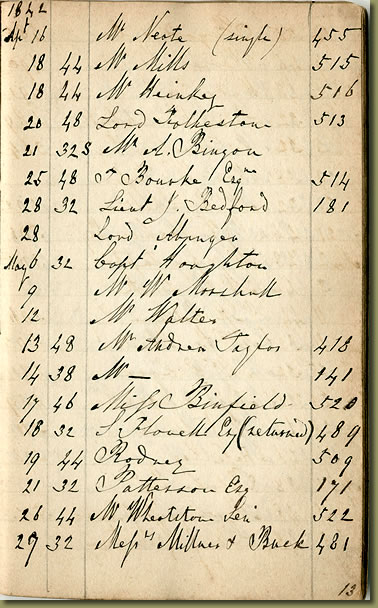 1842
Apl 16 Mr Neate (single) 455
18 44 Mr Mills 515
18 44 Mr Heinkey 516
20 48 Lord Folkestone 513
21 32S Mr A. Bingon
25 48 Bourke Esqre 514
28 32 Lieut J. Bedford 181
28 Lord Abinger
May 6 32 Capt Houghton
9 Mr W Marshall
12 Mr Walter
13 48 Mr Andrew Taylor 418
14 38 Mr — 141
17 46 Miss Binfield 520
18 32 S Flowell Esq (returned) 489
19 44 Rodney 509
21 32 Patterson Esq 171
26 44 Mr Wheatston Jun 522
27 32 Messrs Millner & Buck 481
13